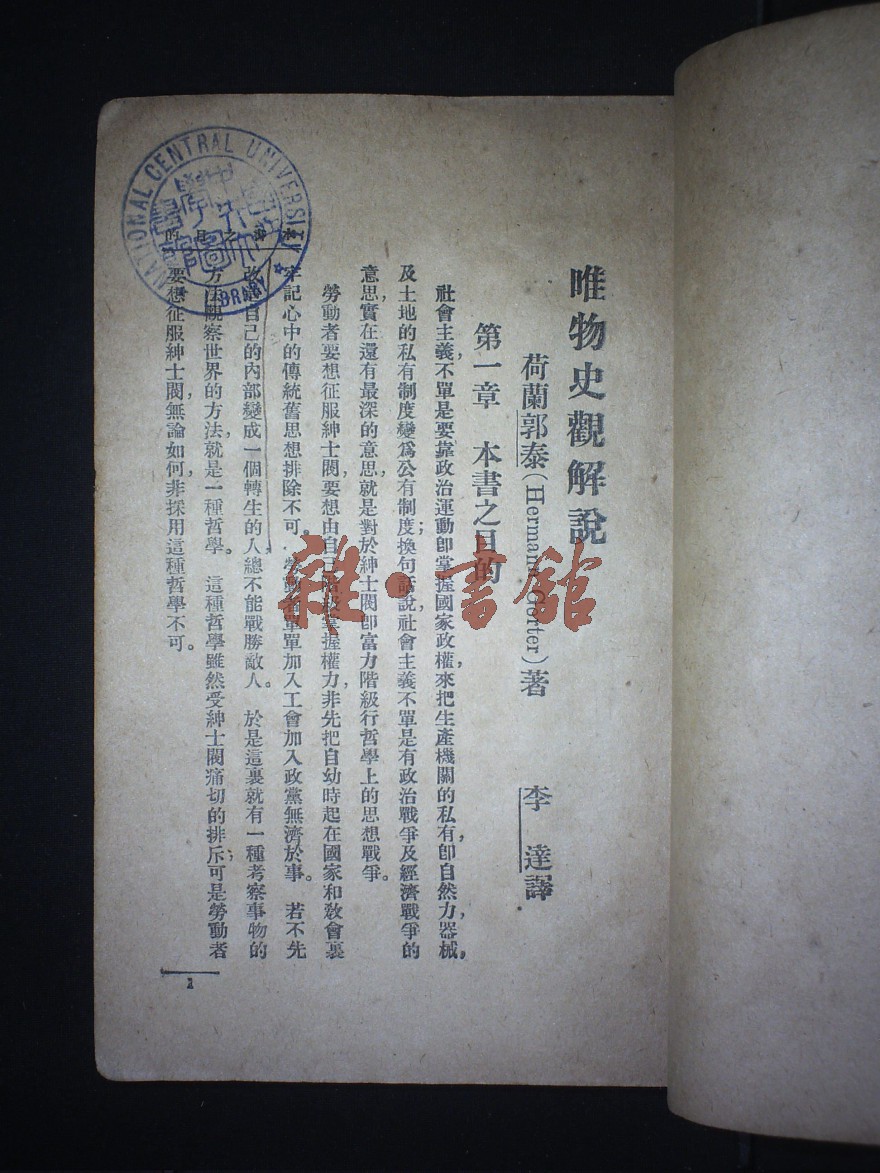 唯物史觀解說
荷蘭郭泰(Hermann Gorter)著 李達譯
第一章 本書之目的
社會主義,不單是要靠政治運動卽掌握國家政權,來把生產機關的私有卽自然力,器械,
及土地的私有制度變爲公有制度;換句話說,社會主義不單是有政治戰爭及經濟戰爭的
意思,實在還有最深的意思,就是對於紳士閥卽富力階級行哲學上的思想戰爭。
勞動者要想征服紳士閥,要想由自己階級掌握權力,非先把自幼時起在國家和敎會裏
牢記心中的傳統舊思想排除不可。勞動者單單加入工會加入政黨無濟於事。若不先
改造自己的內部變成一個轉生的人,總不能戰勝敵人。於是這裏就有一種考察事物的
方法,觀察世界的方法,就是一種哲學。這種哲學雖然受紳士閥痛切的排斥;可是勞動者
要想征服紳士閥,無論如何,非採用這種哲學不可。
本書之目的
1
NATIONAL CENTRAL UNIVERSITY
LIBRARY
國立中央大學圖書館
雜·書館